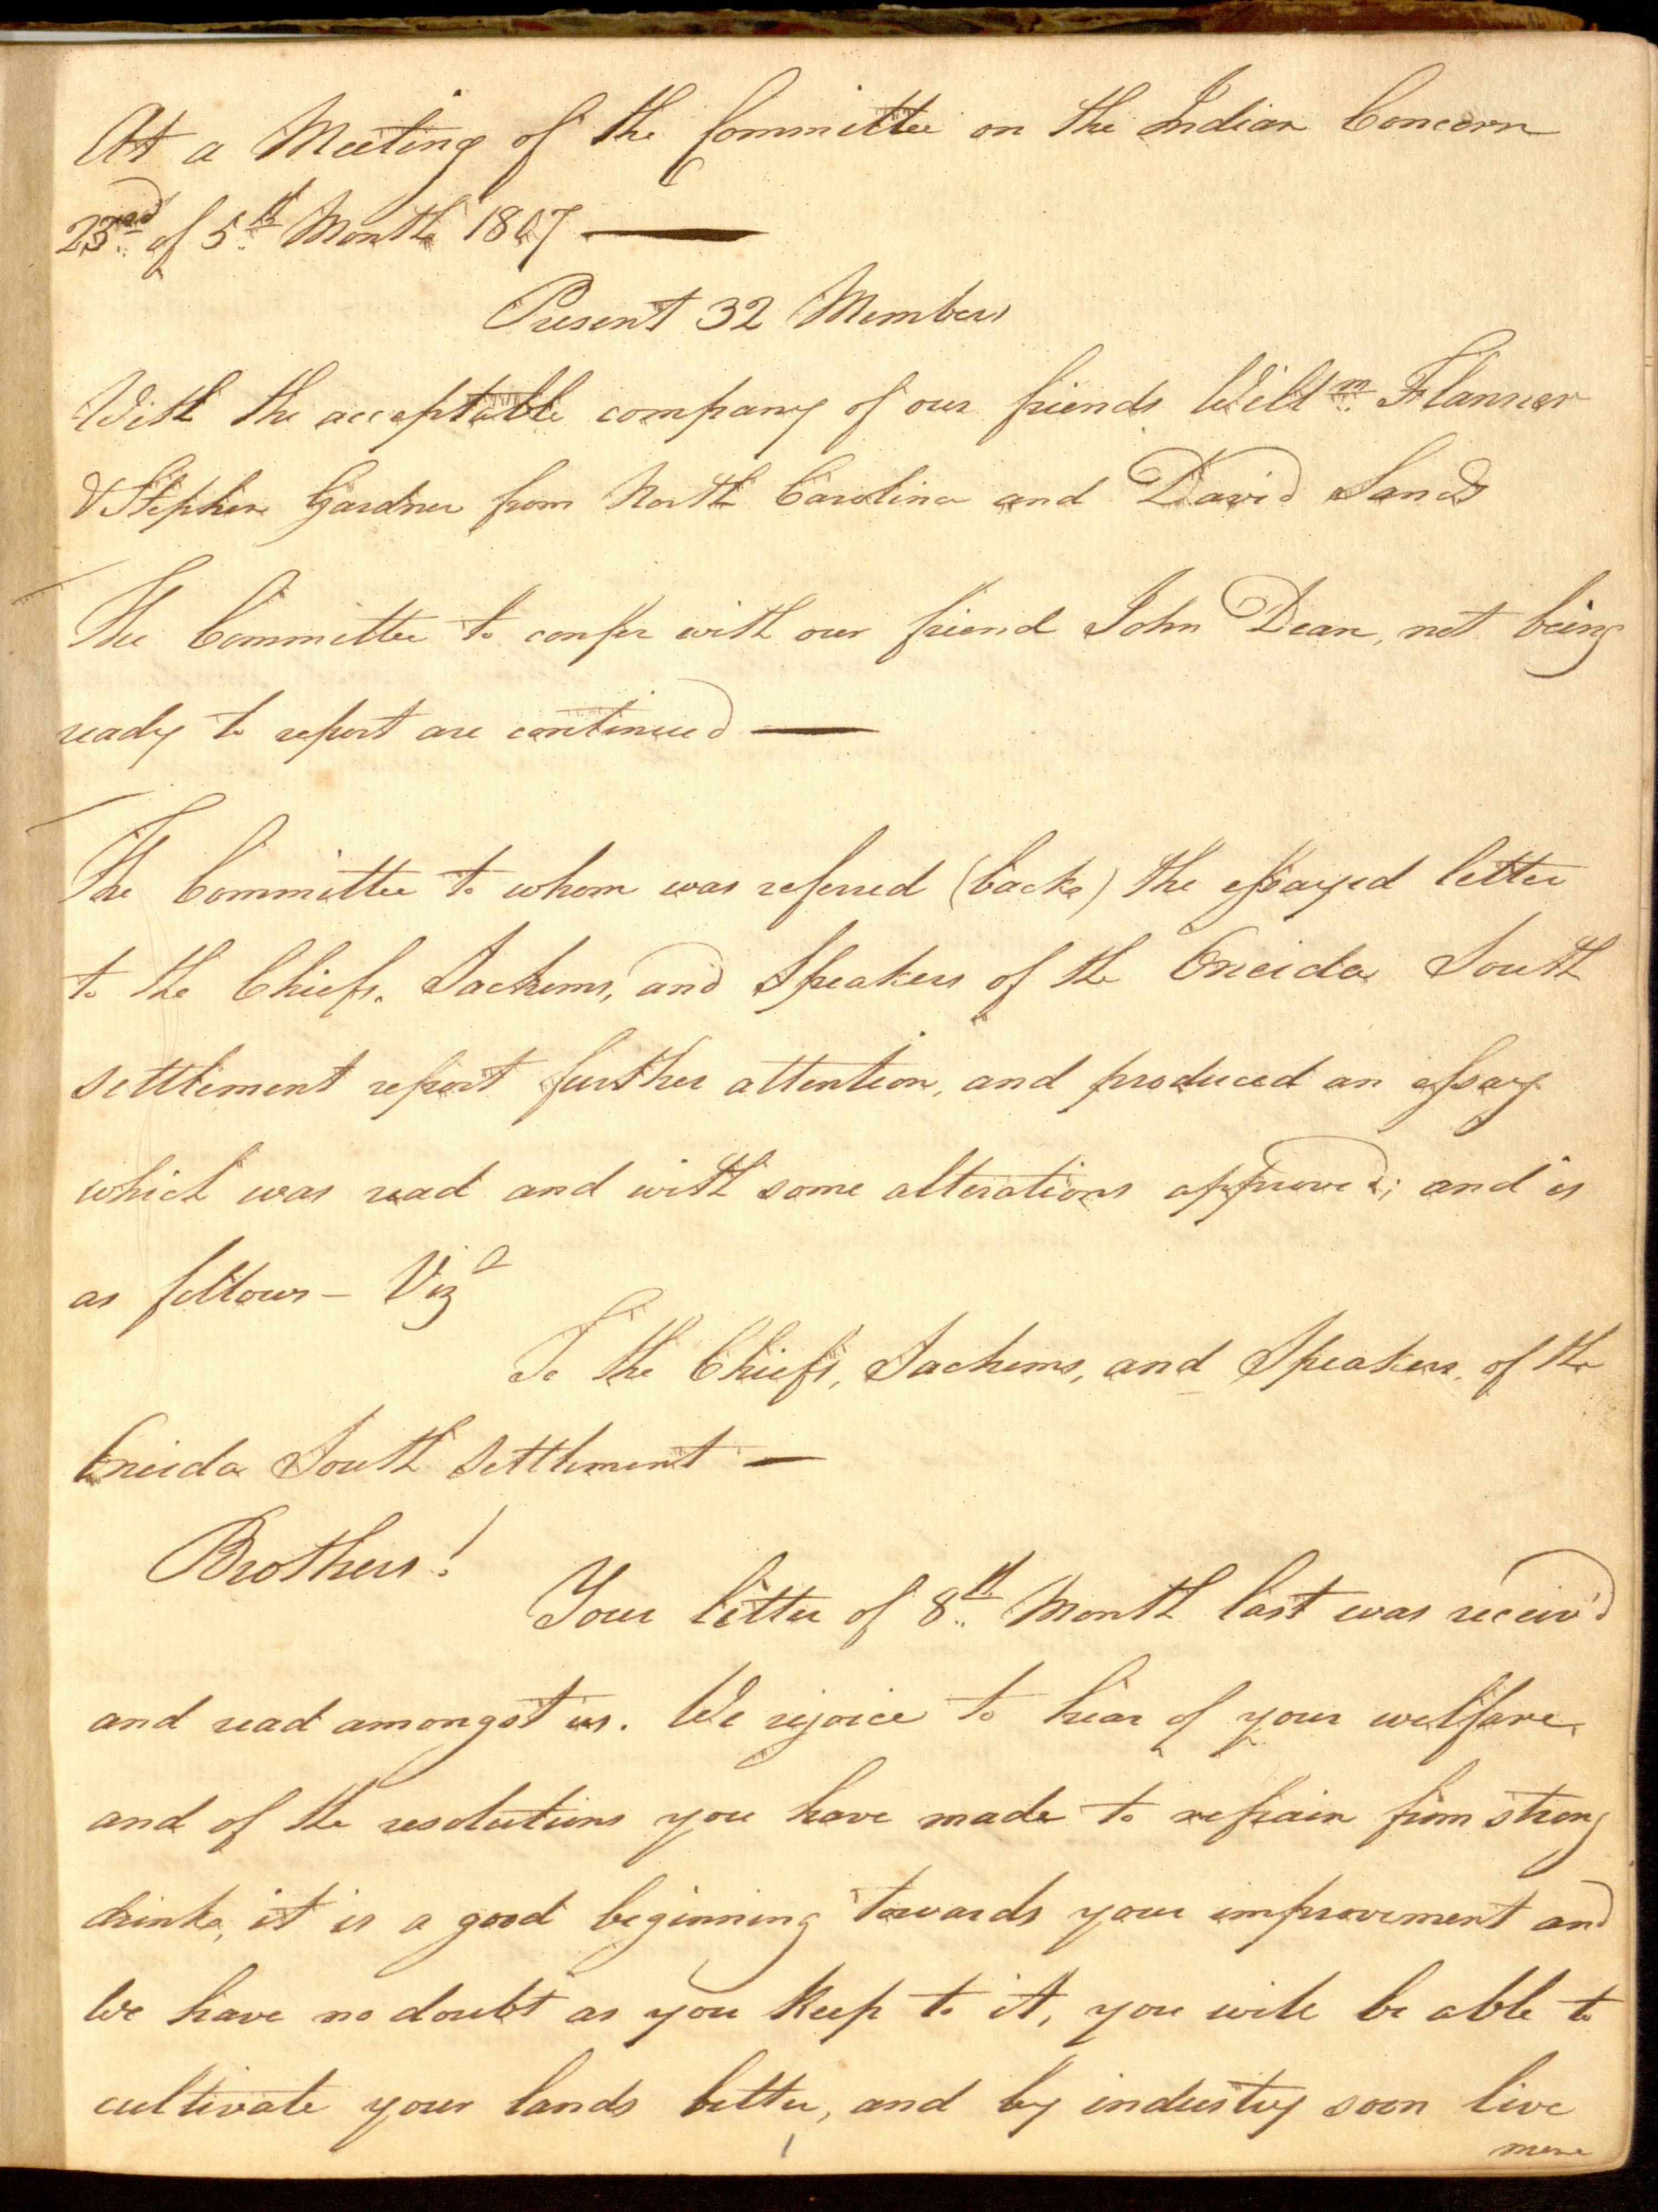 At a Meeting of the Committee on the Indian Concern
23.rd of 5.th Month 1807 —
Present 32 Members
With the acceptable company of our friends Will.m Flanner
& Stephen Gardner from North Carolina and David Sands
The Committee to confer with our friend John Dean, not being
ready to report are continued —
The Committee to whom was referred (back) the essayed letter
to the Chiefs, Sachems, and Speakers of the Oneida South
settlement report further attention, and produced an essay
which was read and with some alterations approved; and is
as follows – Viz
To the Chiefs, Sachems, and Speakers, of the
Oneida South Settlement —
Brothers!
Your letter of 8.th Month last was receiv'd
and read amongst us. We rejoice to hear of your welfare,
and of the resolutions you have made to refrain from strong
drink, it is a good beginning towards your improvement and
We have no doubt as you keep to it, you will be able to
cultivate your lands better, and by industry soon live
more